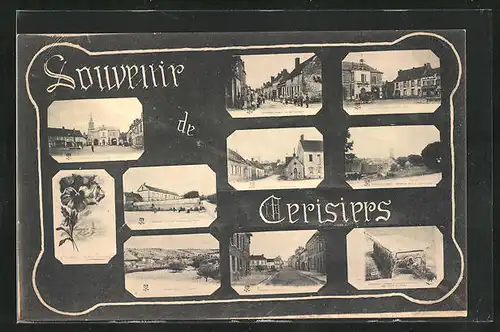 Souvenir
de
Cerisiers